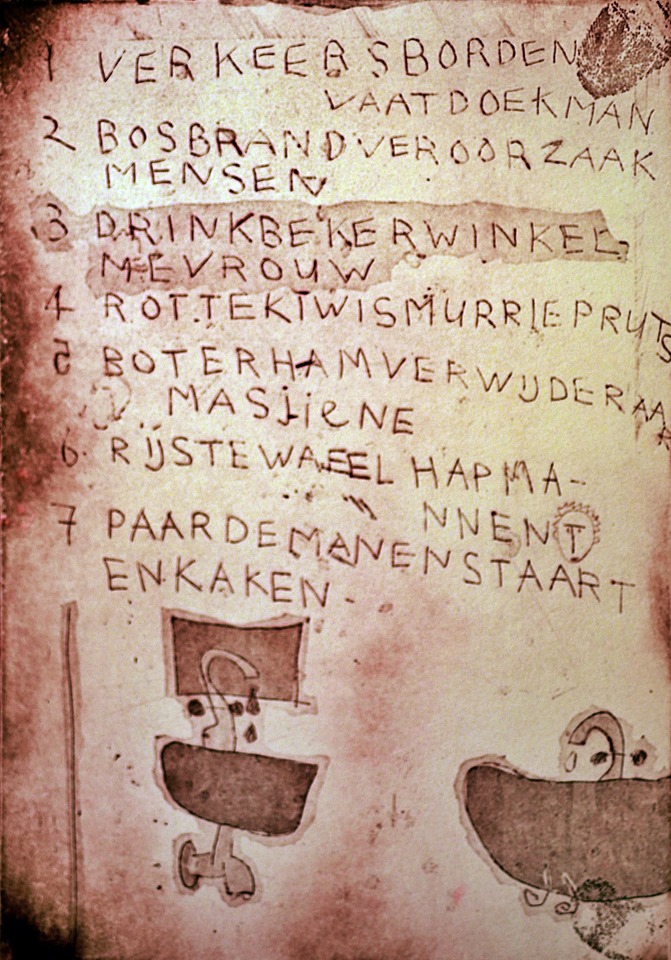 1 VERKEERSBORDEN
VAATDOEKMAN
2 BOSBRANDVEROORZAAK
MENSEN
3 DRINKBEKERWINKEL
MEVROUW
4 ROTTEKIWISMURRIEPRUTS
5 BOTERHAMVERWIJDERAAR
MASJIENE
6 RIJSTEWAFEEL HAPMA-
NNEN
7 PAARDEMANENSTAART
ENKAKEN